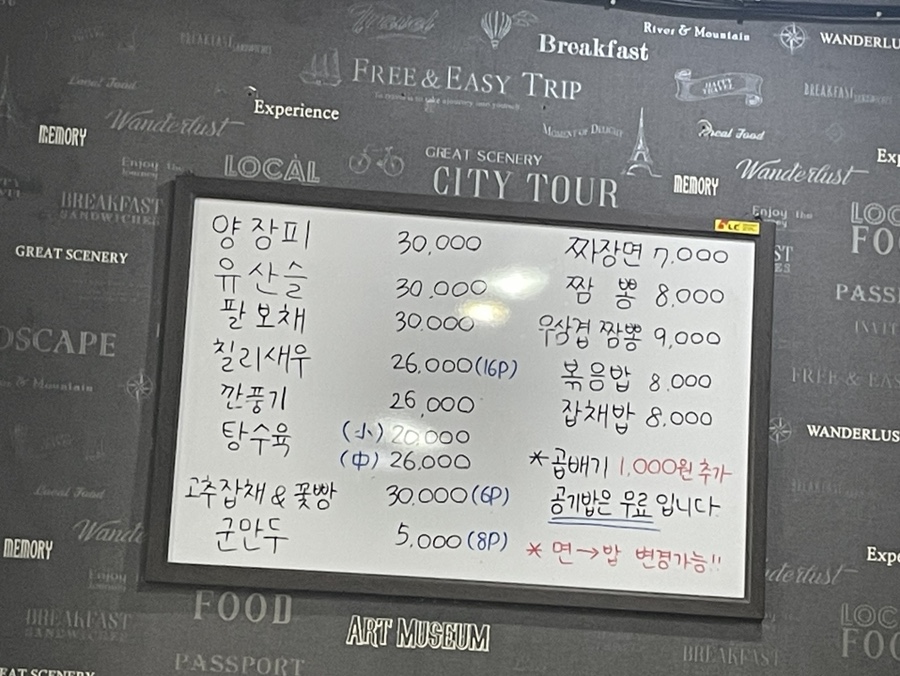 Travel
River & Mountain
WANDERLU
Breakfast
FREE & EASY TRIP
HAPPY TRAVEL
BREAKFAST
Local Food
Experience
MEMORY
Wanderlust
MOMENT OF DELIGHT
Local Food
Enjoy the
LOCAL
GREAT SCENERY
CITY TOUR
MEMORY
Wanderlust
Exp
BREAKFAST
SANDWICHES
Enjoy the
LOC
FO
GREAT SCENERY
PASS
양장피 30,000
유산슬 30,000
팔보채 30,000
칠리새우 26,000 (16P)
깐풍기 26,000
탕수육 (小) 20,000
(中) 26,000
고추잡채 & 꽃빵 30,000 (6P)
군만두 5,000 (8P)
짜장면 7,000
짬 뽕 8,000
우삼겹 짬뽕 9,000
볶음밥 8,000
잡채밥 8,000
*곱배기 1,000원 추가
공기밥은 무료입니다
* 면→밥 변경가능!!
DSCAPE
& Mountain
INVIT
FREE & EAS
WANDERLUS
Local Food
Wande
MEMORY
Enjoy
derlust
Expe
BREAKFAST
SANDWICHES
FOOD
ART MUSEUM
LOC
FOO
PASSPORT
BREAKFAST
EAT SCENERY